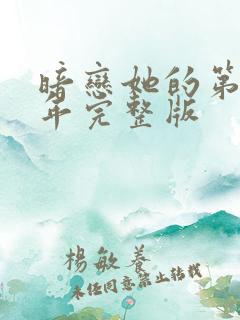 暗戀她的第
年完整版
楊敏養
未经同意禁止转载